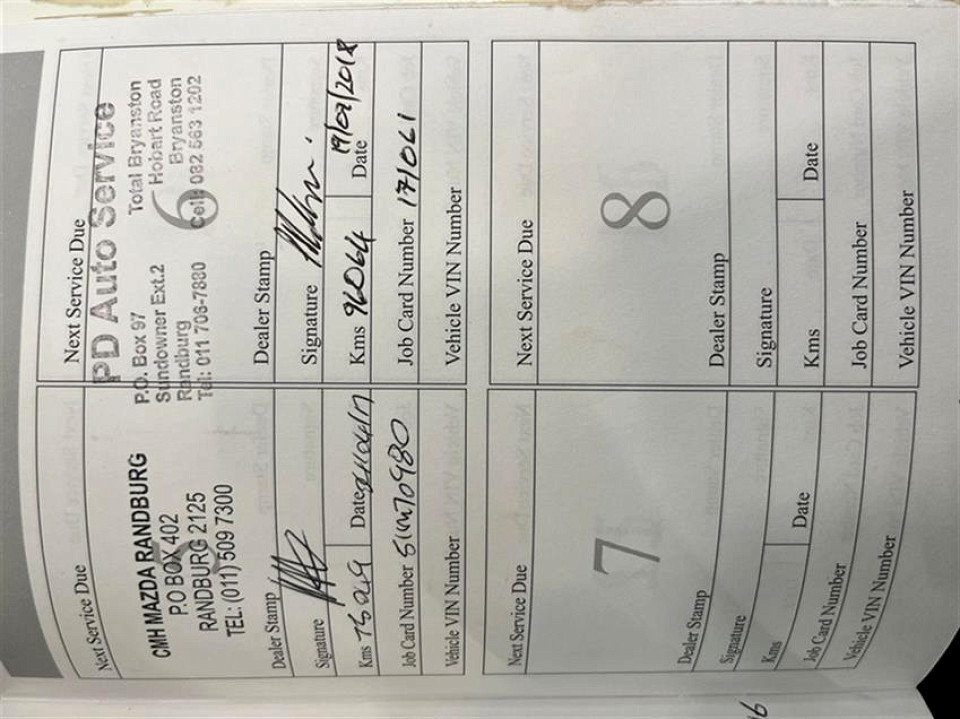 Next Service Due
CMH MAZDA RANDBURG
P.O BOX 402
RANDBURG 2125
TEL: (011) 509 7300
Dealer Stamp
Signature
Kms 75949 Date
Job Card Number
Vehicle VIN Number
Next Service Due
PD Auto Service
P.O. Box 97 Total Bryanston
Sundowner Ext.2 Hobart Road
Randburg Bryanston
Tel: 011 706-7880 Cell: 082 563 1202
6
Dealer Stamp
Signature
Kms 96064 Date 19/09/2018
Job Card Number 17/061
Vehicle VIN Number
Next Service Due
7
Dealer Stamp
Signature
Kms Date
Job Card Number
Vehicle VIN Number
Next Service Due
8
Dealer Stamp
Signature
Kms Date
Job Card Number
Vehicle VIN Number